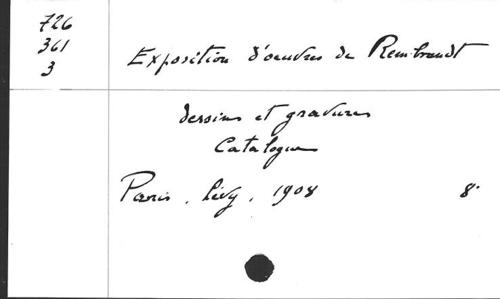 726
361
3
Exposition d'oeuvres de Rembrandt
dessins et gravures
Catalogue
Paris, Lévy, 1908 8°